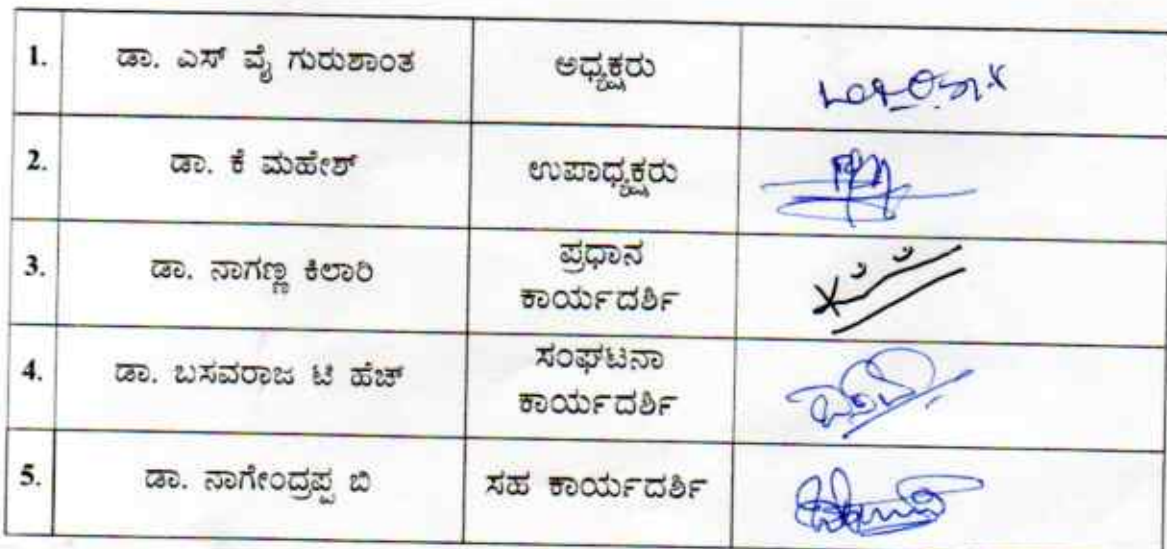 1. ಡಾ. ಎಸ್ ವೈ ಗುರುಶಾಂತ ಅಧ್ಯಕ್ಷರು
2. ಡಾ. ಕೆ ಮಹೇಶ್ ಉಪಾಧ್ಯಕ್ಷರು
3. ಡಾ. ನಾಗಣ್ಣ ಕಿಲಾರಿ ಪ್ರಧಾನ
ಕಾರ್ಯದರ್ಶಿ
4. ಡಾ. ಬಸವರಾಜ ಟಿ ಹೆಚ್ ಸಂಘಟನಾ
ಕಾರ್ಯದರ್ಶಿ
5. ಡಾ. ನಾಗೇಂದ್ರಪ್ಪ ಬಿ ಸಹ ಕಾರ್ಯದರ್ಶಿ